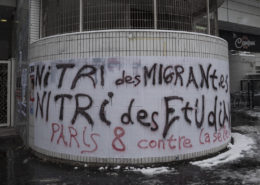 NI TRI des MIGRANTes
NI TRI des ETUDIA
PARIS 8 contre la sele